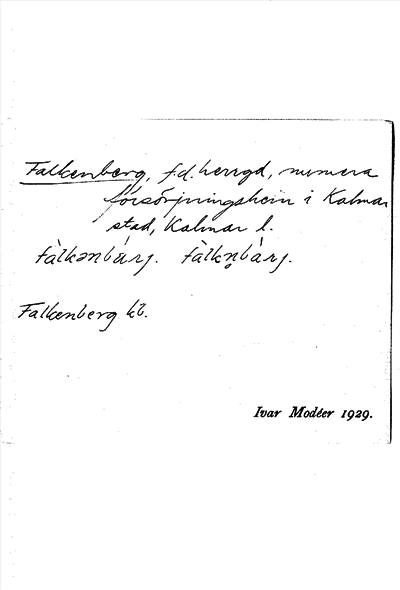 Falkenberg, f.d. herrgd, numera
försörjningshem i Kalmar
stad, Kalmar l.
fàlkənbárj. fàlkn̥bàrj.
Falkenberg kb.
Ivar Modéer 1929.